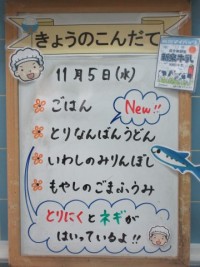 きょうのこんだて
11月5日(水)
ごはん
New!!
とりなんばんうどん
いわしのみりんぼし
もやしのごまふうみ
とりにくとネギが
はいっているよ!!